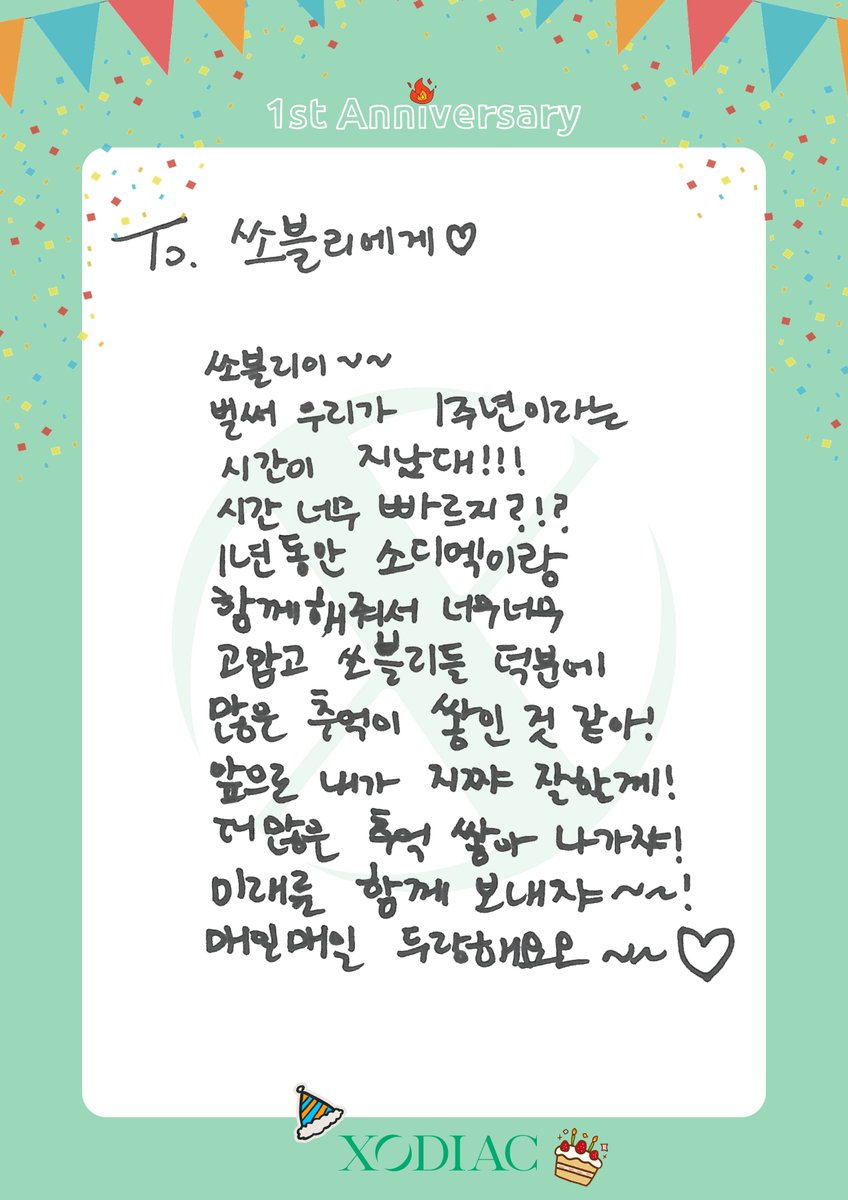 1st Anniversary
To. 쏘블리에게♡
쏘블리이~~
벌써 우리가 1주년이라는
시간이 지났대!!!
시간 너무 빠르지?!?
1년동안 소디엑이랑
함께해줘서 너무너무
고맙고 쏘블리들 덕분에
많은 추억이 쌓인 것 같아!
앞으로 내가 지짜 잘할게!
더 많은 추억 쌓아 나가쟈!
미래를 함께 보내쟈~~!
매일매일 두랑해요오 ~~♡
XODIAC